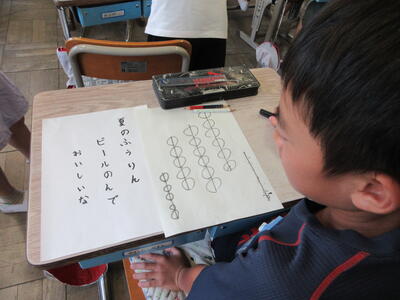 夏のふうりん
ビールのんで
おいしいな